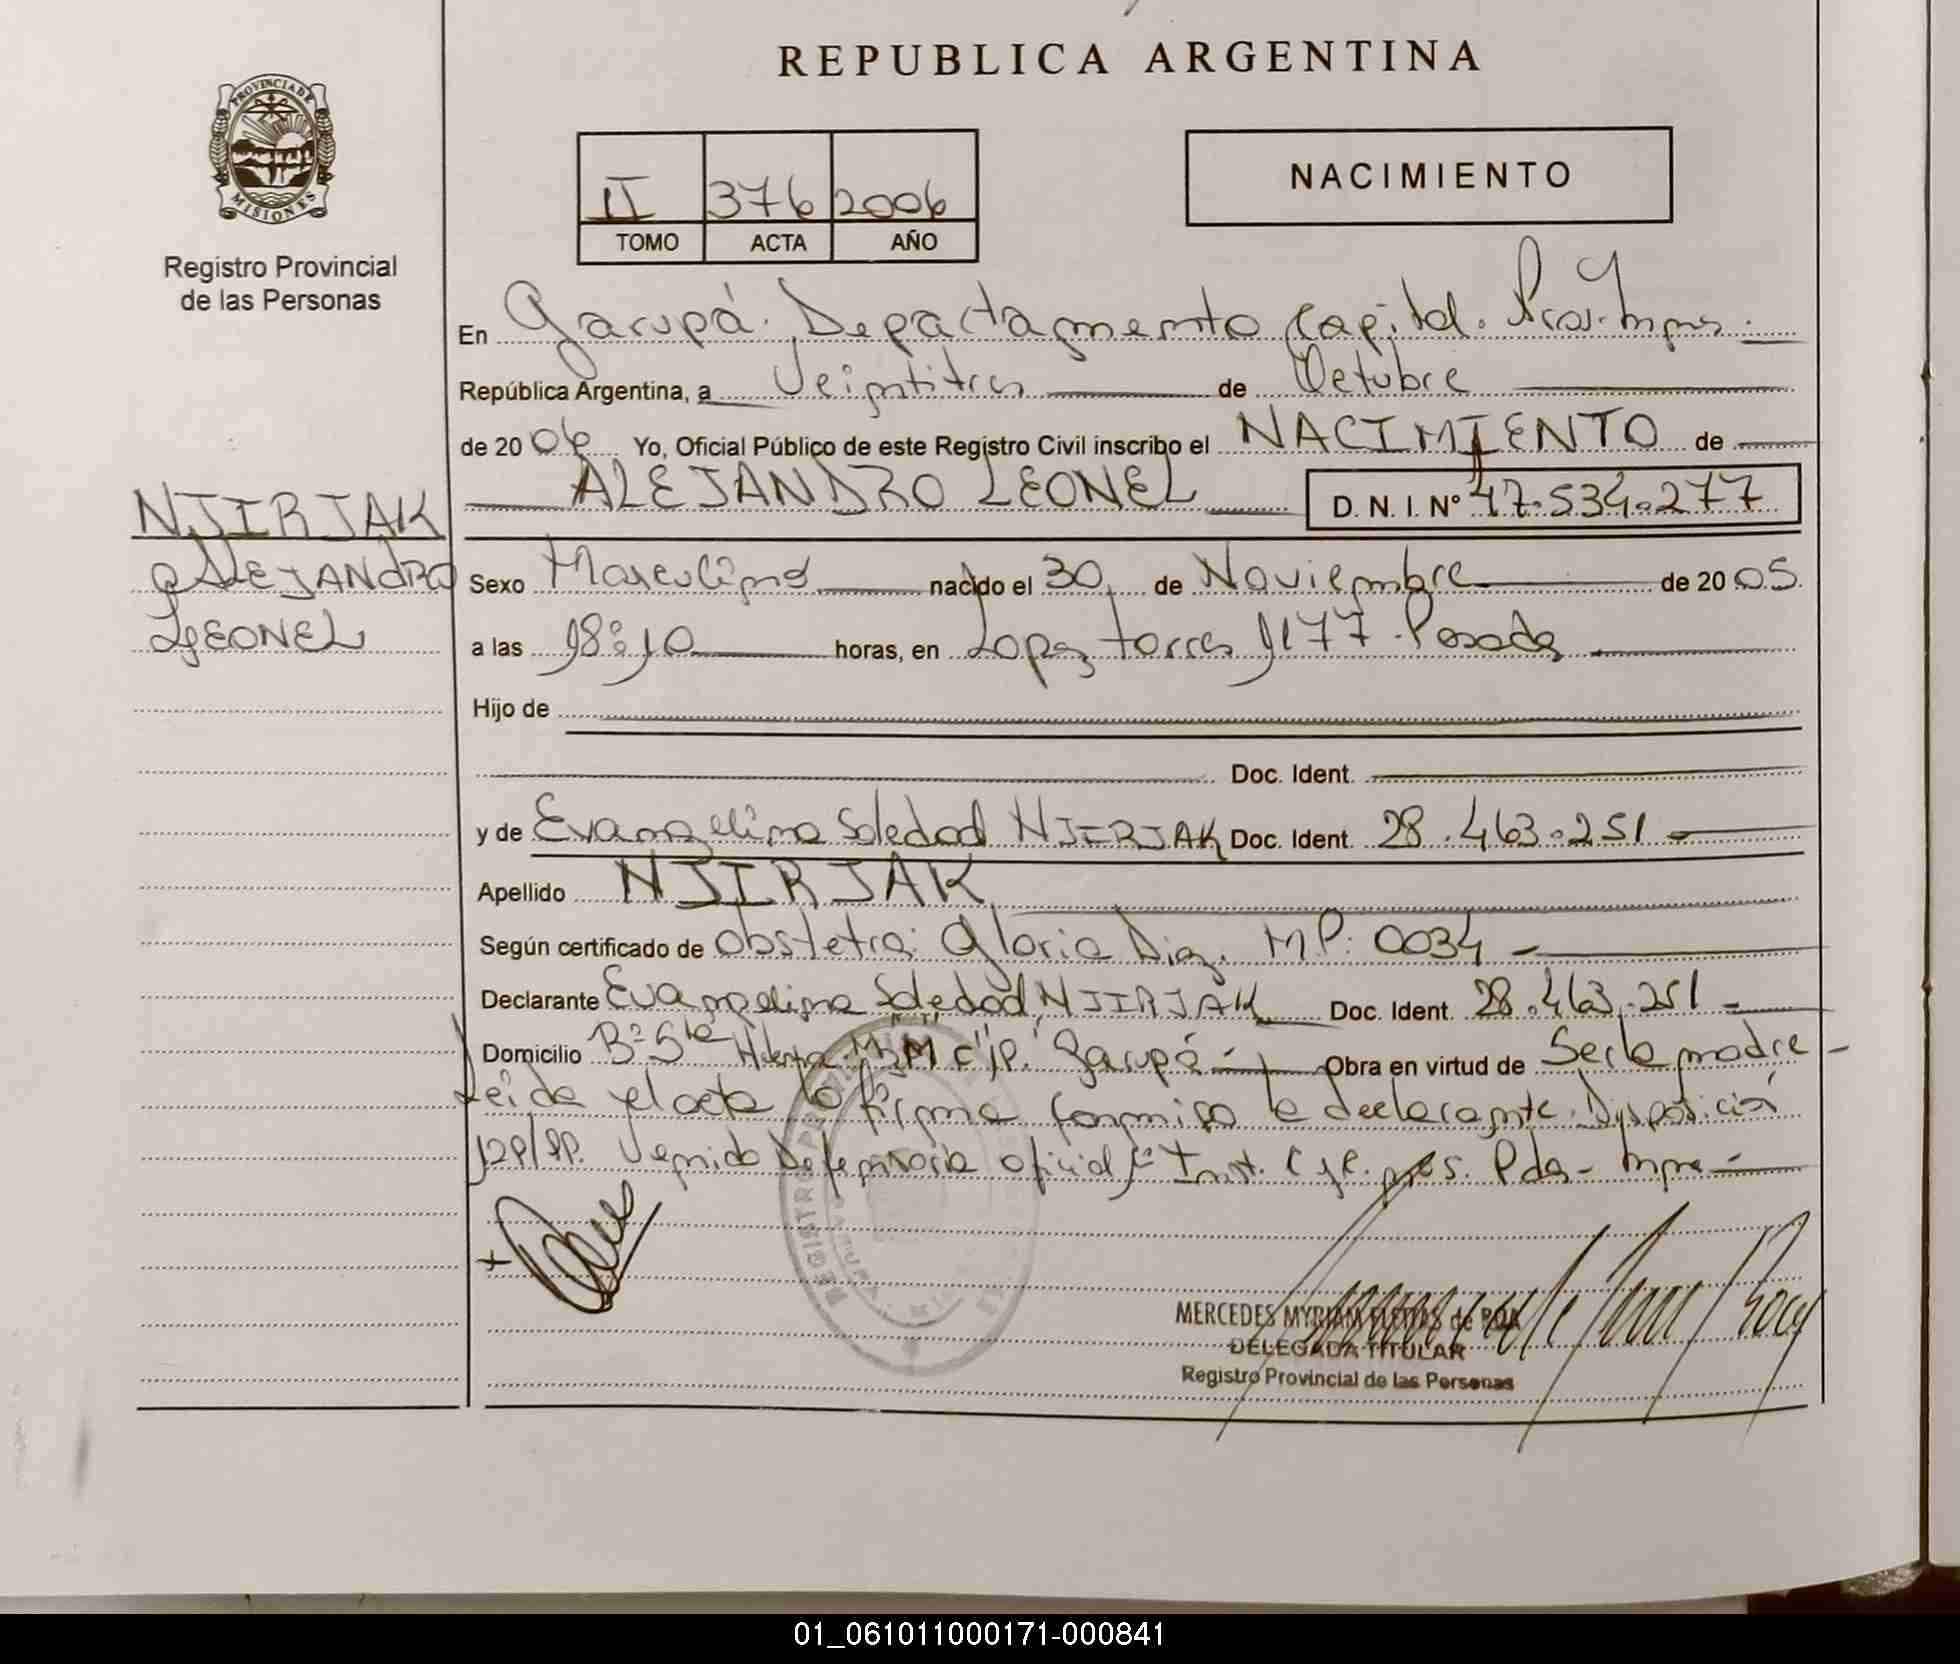 REPUBLICA ARGENTINA
PROVINCIA DE MISIONES
Registro Provincial
de las Personas
II 376 2006
TOMO ACTA AÑO
NACIMIENTO
En Garupá. Departamento Capital. Pcia. Mnes.
República Argentina, a Veintitres de Octubre
de 2006 Yo, Oficial Público de este Registro Civil inscribo el NACIMIENTO de
ALEJANDRO LEONEL D. N. I. Nº 47.534.277
NJIRJAK
ALEJANDRO
LEONEL
Sexo Masculino nacido el 30 de Noviembre de 2005
a las 18:10 horas, en Lopez torres 1177 Posadas
Hijo de
Doc. Ident.
y de Evangelina Soledad NJIRJAK Doc. Ident. 28.463.251
Apellido NJIRJAK
Según certificado de obstetra: Gloria Diaz. M.P: 0034
Declarante Evangelina Soledad NJIRJAK Doc. Ident. 28.463.251
Domicilio Bº Sta Helena Garupá Obra en virtud de Ser la madre
Leida el acta la firma conmigo la declarante. Disposición
Defensoria oficial Inst. Pdas - Mnes
MERCEDES MYRIAM FLEITAS de ROA
DELEGADA TITULAR
Registro Provincial de las Personas
01_061011000171-000841